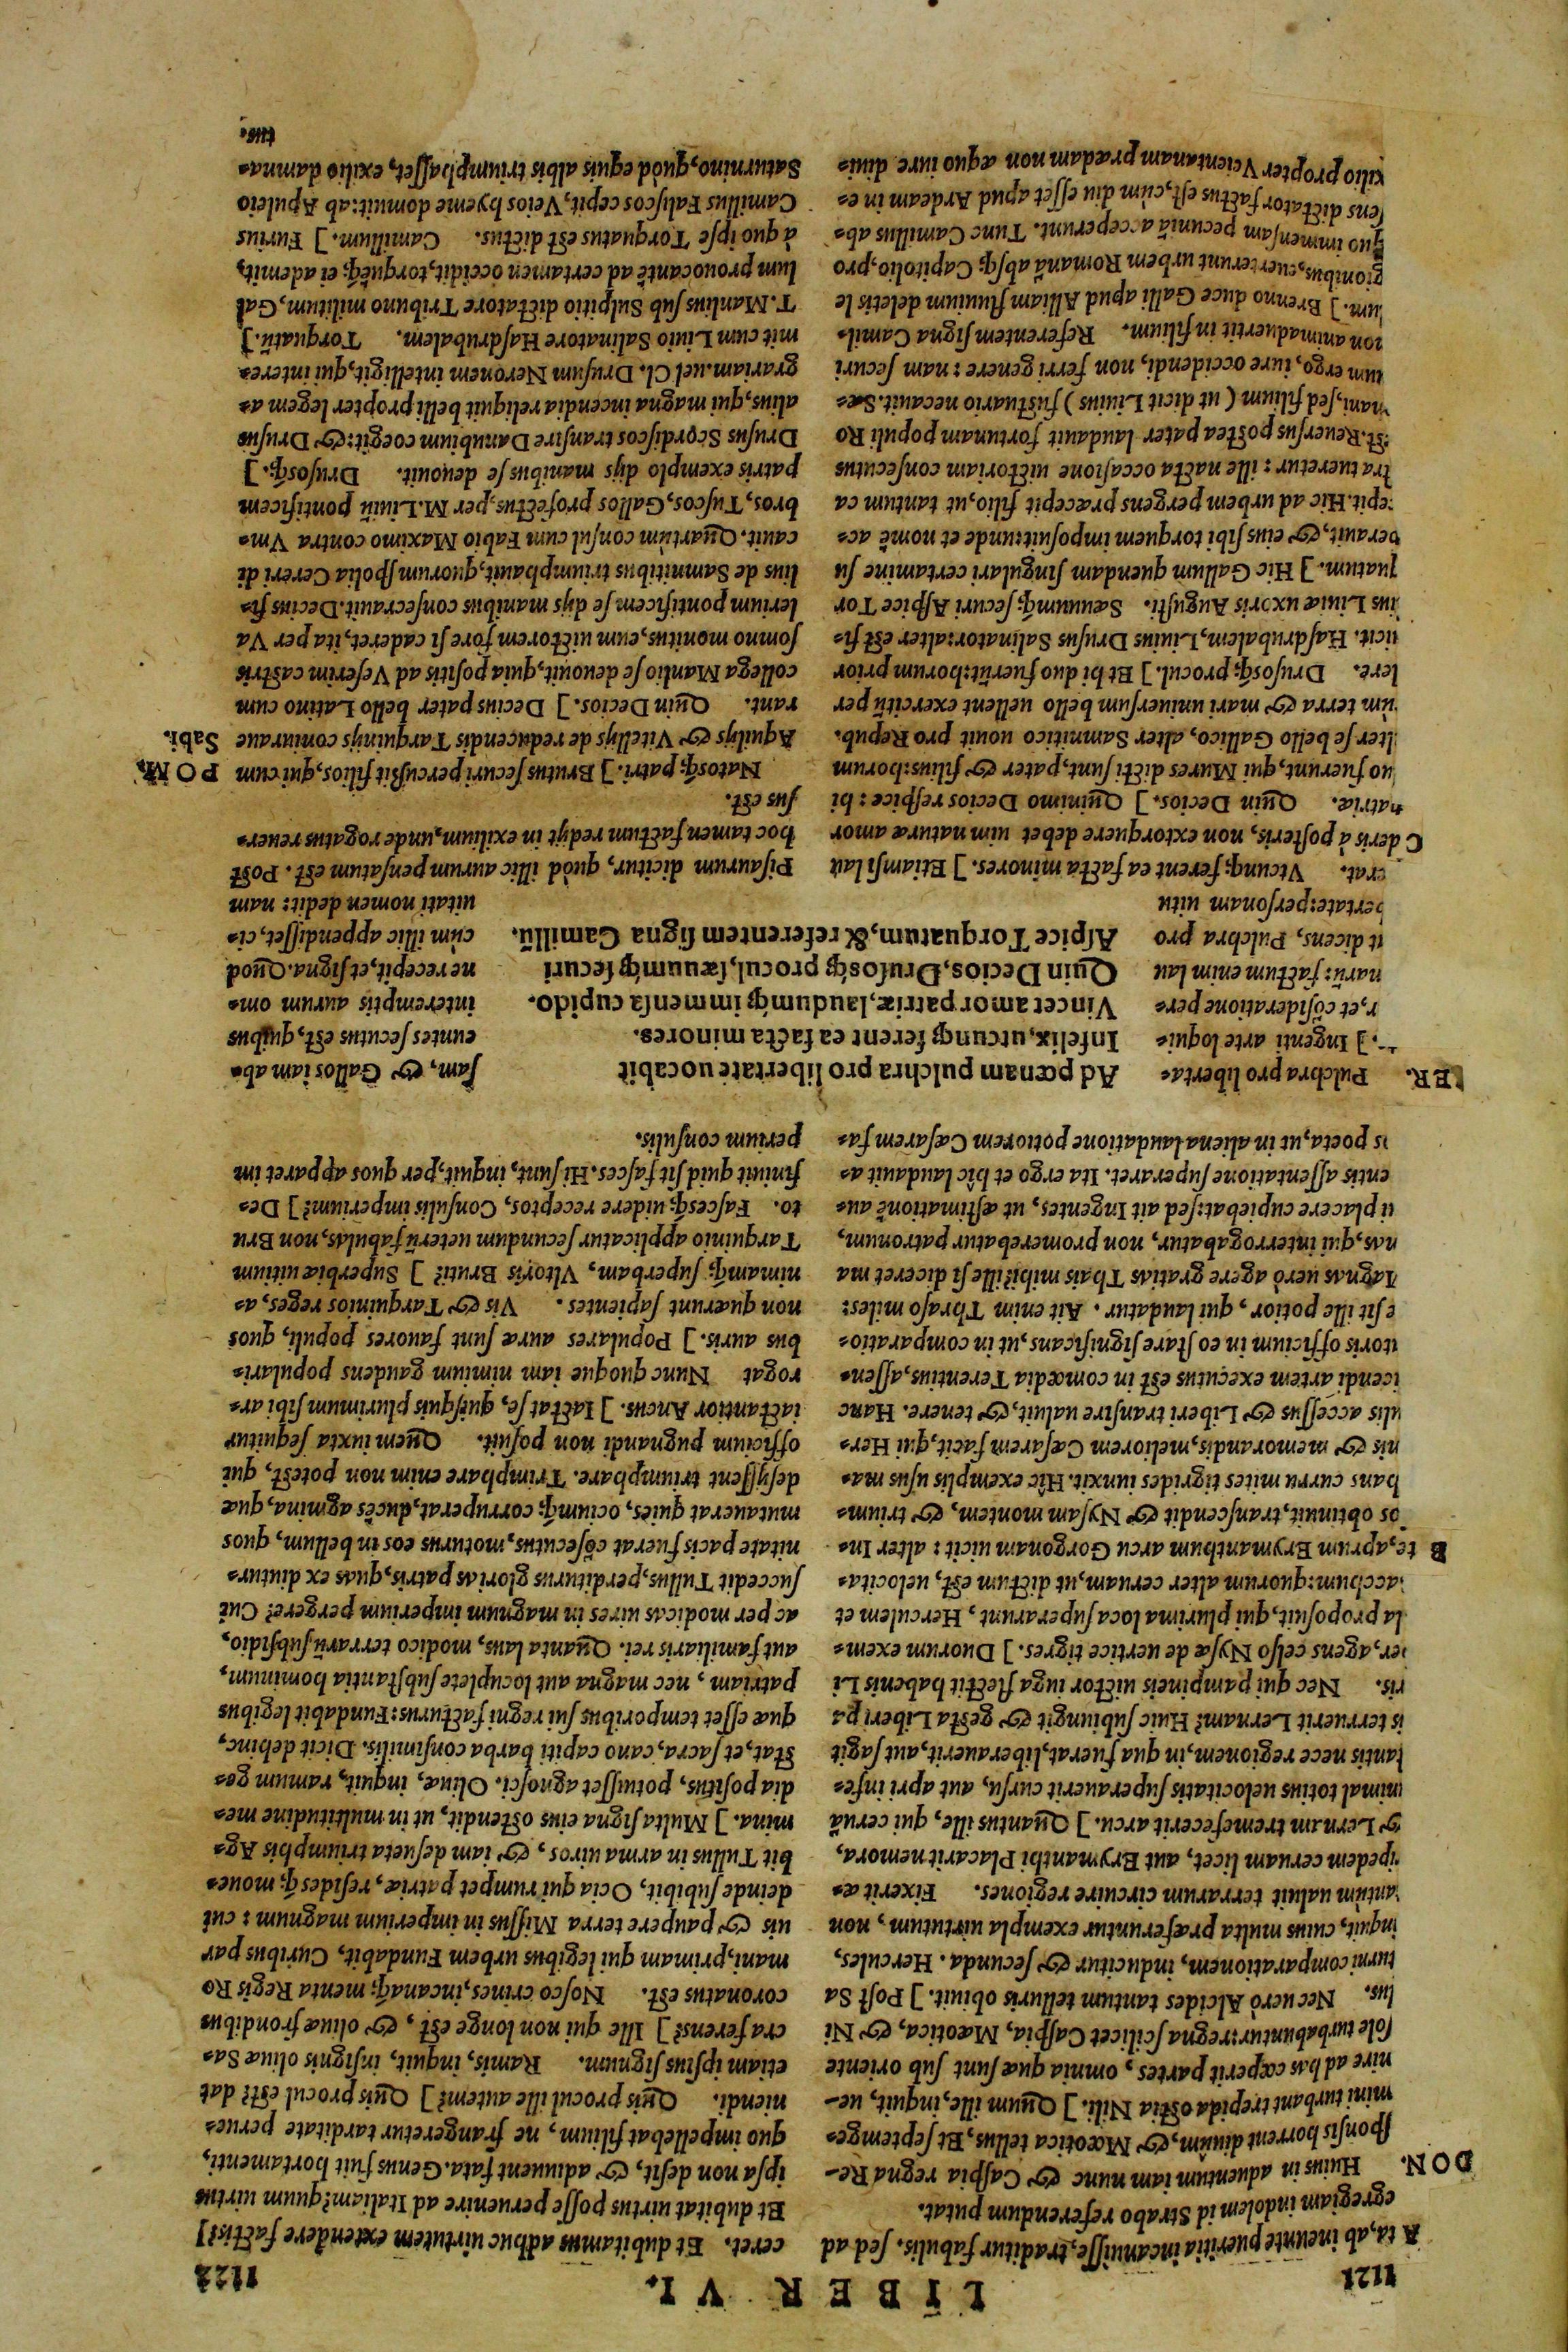 1121
LIBER VI.
1122
A ta,ab ineunte pueritia incanuiſſe,traditur fabulis. ſed ad
egregiam indolem id Strabo referendum putat.
DON. Huius in aduentum iam nunc & Caſpia regna Re-
ſponſis horrent diuûm,& Mœotica tellus, Et ſeptemge-
mini turbant trepida oſtia Nili. ] Quum ille,inquit, ue-
nire ad has cœperit partes, omnia quæ ſunt ſub oriente
ſole turbabuntur:regna ſcilicet Caſpia, Mæotica, & Ni
lus. Nec uerò Alcides tantum telluris obiuit. ] Poſt Sa
turni comparationem, inducitur & ſecunda. Hercules,
inquit, cuius multa præferuntur exempla uirtutum, non
tantùm ualuit terrarum circuire regiones. Fixerit æ-
ripedem ceruam licet, aut Erymanthi Placarit nemora,
& Lernam tremefecerit arcu. ] Quantus ille, qui ceruā
animal totius uelocitatis ſuperauerit curſu, aut apri infe-
ſtantis nece regionem,in qua fuerat,liberauerit,aut ſagit
is terruerit Lernam? Huic ſubiungit & geſta Liberi pa
ris. Nec qui pampineis uictor iuga flectit habenis Li
ber,agens celſo Nyſæ de uertice tigres. ] Duorum exem-
la propoſuit,qui plurima loca ſuperarunt, Herculem et
acchum:quorum alter ceruam,ut dictum eſt, uelocita-
B te,aprum Erymanthum arcu Gorgonam uicit: alter In-
dos obtinuit,tranſcendit & Nyſam montem, & trium-
hans curru mites tigrides iunxit. Hîc exemplis uſus ma-
nis & memorandis,meliorem Cæſarem facit,qui Her-
ulis acceſſus & Liberi tranſire ualuit,& tenere. Hanc
icendi artem executus eſt in comœdia Terentius,aſſen-
atoris officium in eo ſtare ſignificans,ut in comparatio-
e ſit ille potior, qui laudatur. Ait enim Thraſo miles:
Magnas uerò agere gratias Thais mihi?ille ſi diceret ma
nas,qui interrogabatur, non promerebatur patronum,
ui placere cupiebat:ſed ait Ingentes, ut æſtimationē au-
entis aſſentatione ſuperaret. Ita ergo et hîc laudauit a-
is poeta,ut in aliena laudatione potiorem Cæſarem fa-
ceret. Et dubitamus adhuc uirtutem extendere factis?]
Et dubitat uirtus poſſe peruenire ad Italiam?quum uirtus
ipſa non deſit, & adiuuent fata.Genus fuit hortamenti,
quo impellebat filium, ne frangeretur tarditate perue-
niendi. Quis procul ille autem? ] Quis procul eſt? dat
etiam ipſius ſignum. Ramis, inquit, inſignis oliuæ Sa-
cra ferens? ] Ille qui non longe eſt, & oliuæ frondibus
coronatus eſt. Noſco crines,incanaq́; menta Regis Ro
mani,primam qui legibus urbem Fundabit, Curibus par
uis & paupere terra Miſſus in imperium magnum: cui
deinde ſubibit, Ocia qui rumpet patriæ, reſidesq́; moue-
bit Tullus in arma uiros, & iam deſueta triumphis Ag-
mina. ] Multa ſigna eius oſtendit, ut in multitudine me-
dia poſitus, potuiſſet agnoſci. Oliuæ, inquit, ramum ge-
ſtat,et ſacra,cano capiti barba conſimilis. Dicit dehinc,
quæ eſſet temporibus ſui regni facturus: Fundabit legibus
patriam, nec magna aut locuplete ſubſtantia hominum,
aut familiaris rei. Quanta laus, modico terrarū ſubſidio,
ac per modicas uires in magnum imperium pergere? Cui
ſuccedit Tullus,perditurus glorias patris,quas ex diutur-
nitate pacis fuerat cōſecutus,moturus eos in bellum, quos
mutauerat quies, ociumq́; corruperat,ducēs agmina,quæ
deſijſſent triumphare. Triumphare enim non poteſt, qui
officium pugnandi non poſuit. Quem iuxta ſequitur
iactantior Ancus. ] Iactat ſe, quiſquis plurimum ſibi ar-
rogat Nunc quoque iam nimium gaudens populari-
bus auris. ] Populares auræ ſunt fauores populi, quos
non quærunt ſapientes. Vis & Tarquinios reges, a-
nimamq́; ſuperbam, Vltoris Bruti? ] Superbiæ uitium
Tarquinio applicatur ſecundum ueterū fabulas,non Bru
to. Faſcesq́; uidere receptos, Conſulis imperium? ] De-
finiuit quid ſit faſces.Hi ſunt, inquit,per quos apparet im
perium conſulis.
Ad pœnam pulchra pro libertate uocabit
Infelix,utcunq; ferent ea facta minores.
Vincet amor patriæ,laudumq́; immenſa cupido.
Quin Decios,Druſosq́; procul,ſæuumq́; ſecuri
Aſpice Torquatum,& referentem ſigna Camillū.
SER. Pulchra pro liberta-
te. ] Ingenti arte loqui-
r,et cōſideratione per-
narū: factum enim lau
it dicens, Pulchra pro
bertate:perſonam uitu
erat. Vtcunq; ferent ea facta minores. ] Etiamſi lau
C deris à poſteris, non extorquere debet uim naturæ amor
patriæ. Quin Decios. ] Quinimo Decios reſpice: hi
uo fuerunt,qui Mures dicti ſunt,pater & filius:horum
lter ſe bello Gallico, alter Samnitico uouit pro Repub.
ùm terra & mari uniuerſum bello uellent exercitū per
lere. Druſosq́; procul. ] Et hi duo fuerūt:horum prior
uicit. Haſdrubalem,Liuius Druſus Salinator:alter eſt fi-
ius Liuiæ uxoris Auguſti. Sæuumq́; ſecuri Aſpice Tor
quatum. ] Hic Gallum quendam ſingulari certamine ſu
perauit,& eius ſibi torquem impoſuit:unde et nomē ac-
cepit.Hic ad urbem pergens præcepit filio,ut tantum ca
ſtra tueretur: ille nacta occaſione uictoriam conſecutus
eſt.Reuerſus poſtea pater laudauit fortunam populi Ro
mani,ſed filium ( ut dicit Liuius ) fuſtuario necauit.Sæ-
uum ergo, iure occidendi, non ferri genere: nam ſecuri
non animaduertit in filium. Referentem ſigna Camil-
lum. ] Brenno duce Galli apud Alliam fluuium deletis le
gionibus,euerterunt urbem Romanā abſq; Capitolio,pro
quo immenſam pecuniā acceperunt. Tunc Camillus ab-
ſens dictator factus eſt,cùm diu eſſet apud Ardeam in e-
xilio propter Veientanam prædam non æquo iure diui-
ſam, & Gallos iam ab-
euntes ſecutus eſt, quibus
interemptis aurum om-
ne recepit,et ſigna.Quod
cùm illic appendiſſet, ci-
uitati nomen dedit: nam
Piſaurum dicitur, quòd illic aurum penſatum eſt. Poſt
hoc tamen factum redijt in exilium,unde rogatus reuer-
ſus eſt.
POM. Sabi.
Natosq́; patri. ] Brutus ſecuri percuſſit filios,qui cum
Aquilijs & Vitellijs de reducendis Tarquinijs coniuraue
rant. Quin Decios. ] Decius pater bello Latino cum
collega Manlio ſe deuouit,quia poſitis ad Veſerim caſtris
ſomno monitus,eum uictorem fore ſi caderet,ita per Va
lerium pontificem ſe dijs manibus conſecrauit.Decius fi-
lius de Samnitibus triumphauit,quorum ſpolia Cereri di
cauit. Quartùm conſul cum Fabio Maximo contra Vm-
bros,Tuſcos,Gallos profectus,per M.Liuiū pontificem
patris exemplo dijs manibus ſe deuouit. Druſosq́. ]
Druſus Scordiſcos tranſire Danubium coegit:& Druſus
alius,qui magna incendia reliquit belli propter legem a-
grariam.uel Cl. Druſum Neronem intelligit,qui intere-
mit cum Liuio Salinatore Haſdrubalem. Torquatū.]
T.Manlius ſub Sulpitio dictatore Tribuno militum, Gal
lum prouocantē ad certamen occidit,torquēq́; ei ademit,
à quo ipſe Torquatus eſt dictus. Camillum. ] Furius
Camillus Faliſcos cepit,Veios hyeme domuit:ab Apuleio
Saturnino,quòd equis albis triumphaſſet, exilio damna-
tus.